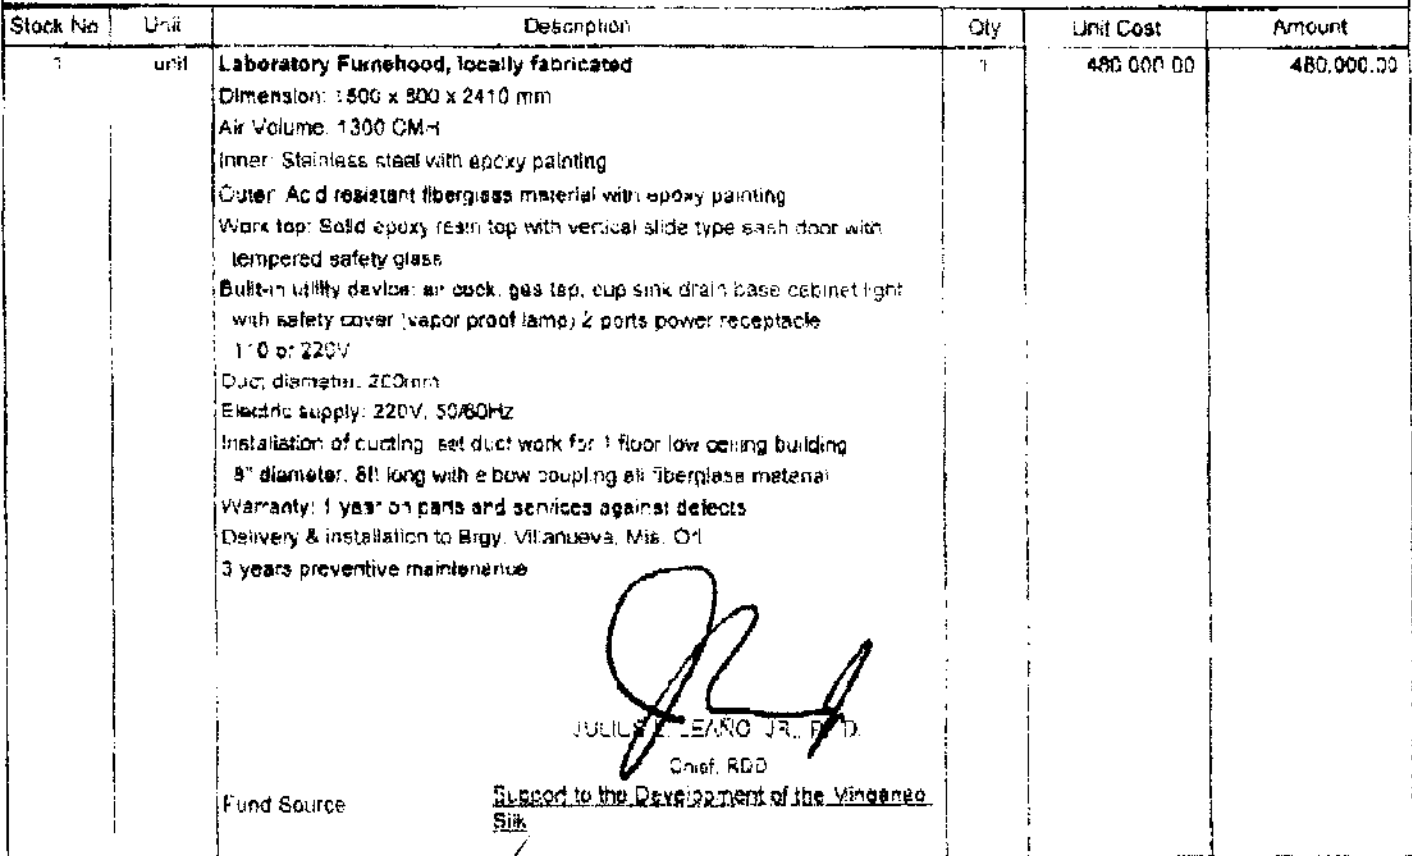 Stock No Unit Description Qty Unit Cost Amount
1 unit Laboratory Fumehood, locally fabricated 1 480,000.00 480,000.00
Dimension: 1500 x 800 x 2410 mm
Air Volume: 1300 CMH
Inner: Stainless steel with epoxy painting
Outer: Acid resistant fiberglass material with epoxy painting
Work top: Solid epoxy resin top with vertical slide type sash door with
tempered safety glass
Built-in utility device: air cock, gas tap, cup sink drain base cabinet light
with safety cover (vapor proof lamp) 2 ports power receptacle
110 or 220V
Duct diameter: 200mm
Electric supply: 220V, 50/60Hz
Installation of ducting set duct work for 1 floor low ceiling building
8" diameter, 8ft long with elbow coupling all fiberglass material
Warranty: 1 year on parts and services against defects
Delivery & installation to Brgy. Villanueva, Mis. Or.
3 years preventive maintenance
JULIUS L. LEAÑO JR., Ph.D.
Chief, RDD
Fund Source Support to the Development of the Mindanao
Silk